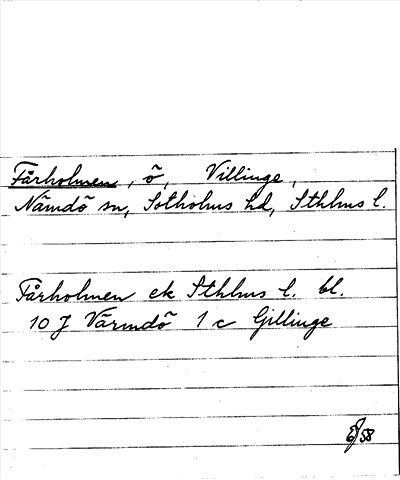 Fårholmen, ö, Villinge,
Nämdö sn, Sotholms hd, Sthlms l.
Fårholmen ek Sthlms l. bl.
10 J Värmdö 1 c Gillinge